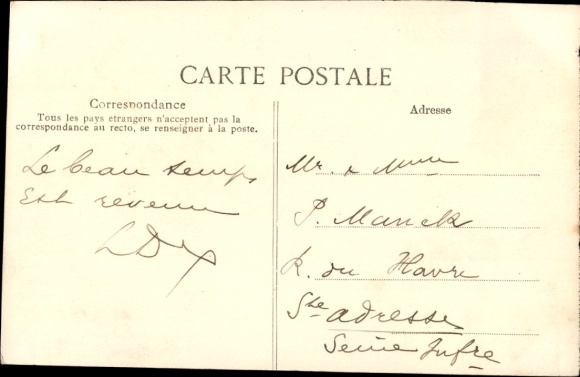 CARTE POSTALE
Correspondance
Tous les pays étrangers n'acceptent pas la
correspondance au recto, se renseigner à la poste.
Le beau temps
Est revenu
Adresse
Mr. & Mme
P. Manck
R. du Havre
Ste adresse
Seine Infre